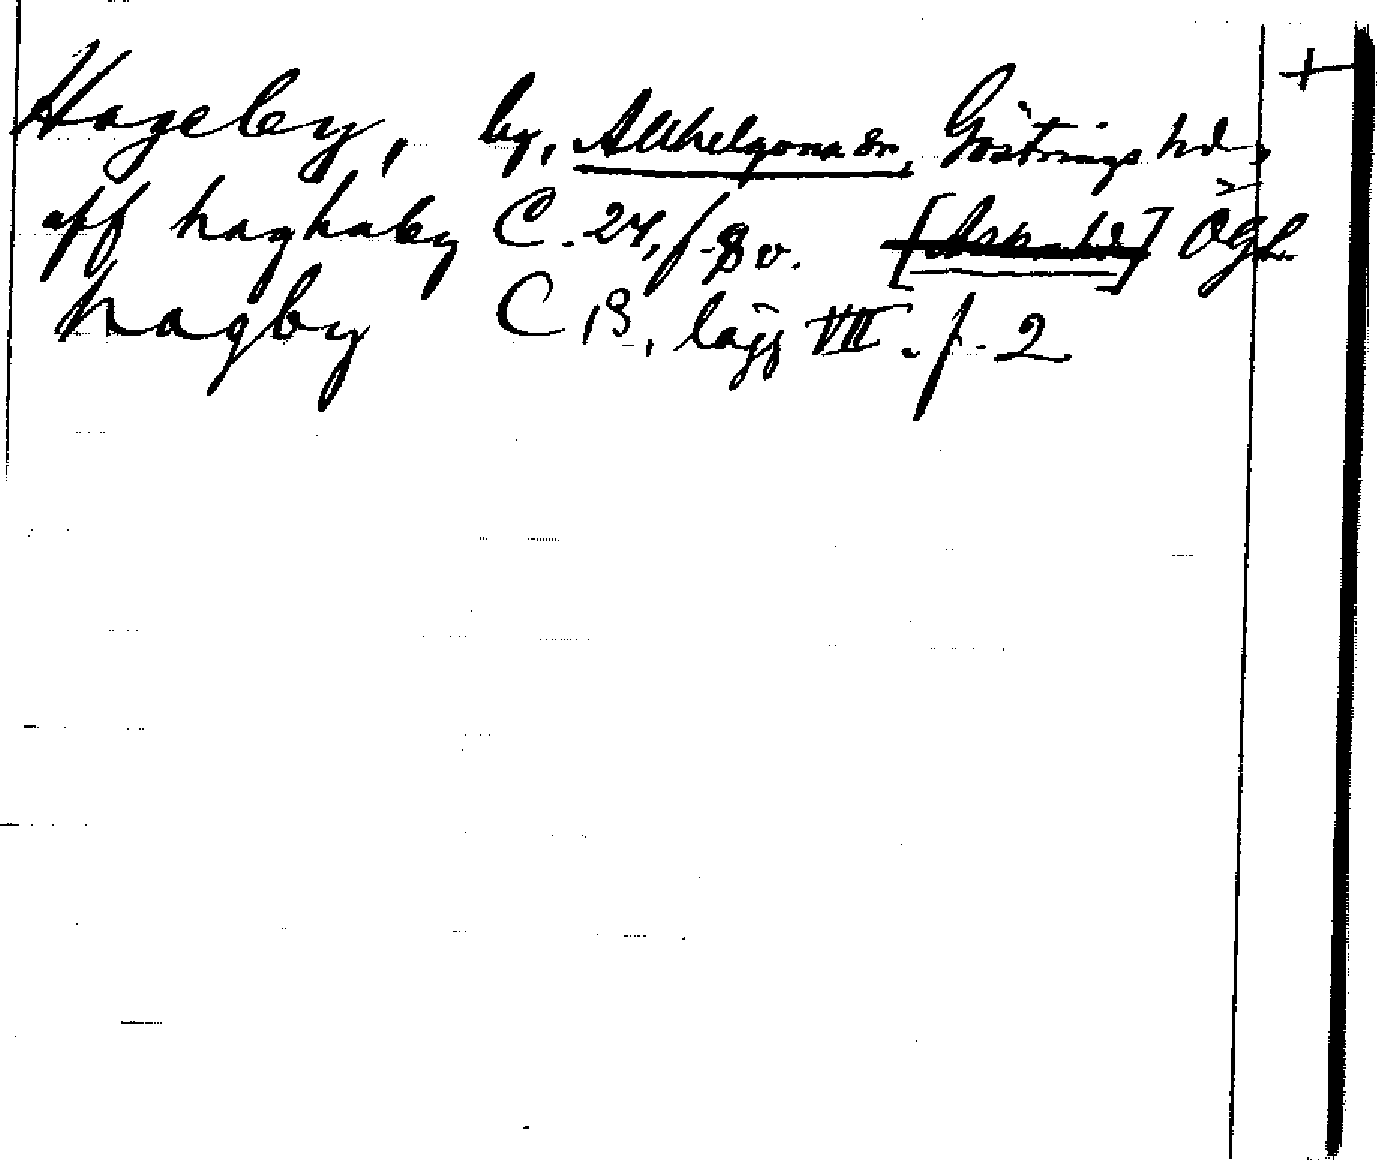 Hageby, by, Allhelgona sn, Göstrings hd, +
aff haghaby C. 24, f. 8 v. [Aska hd] Ögl.
hagby C 18, lägg VII. f. 2